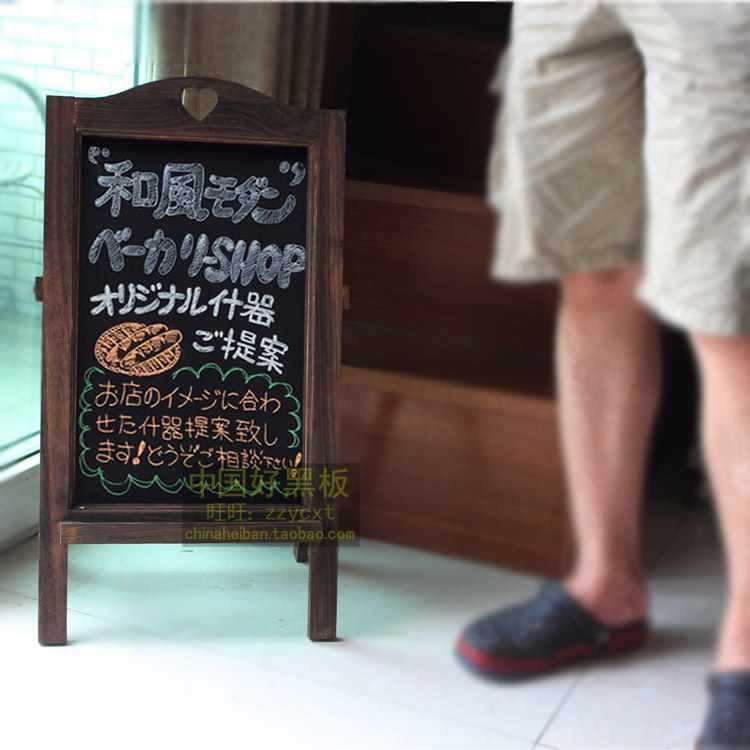 “和風モダン”
ベーカリーSHOP
オリジナル什器
ご提案
お店のイメージに合わ
せた什器提案致し
ます!どうぞご相談下さい!
中国好黑板
旺旺: zzycxt
chinaheiban.taobao.com